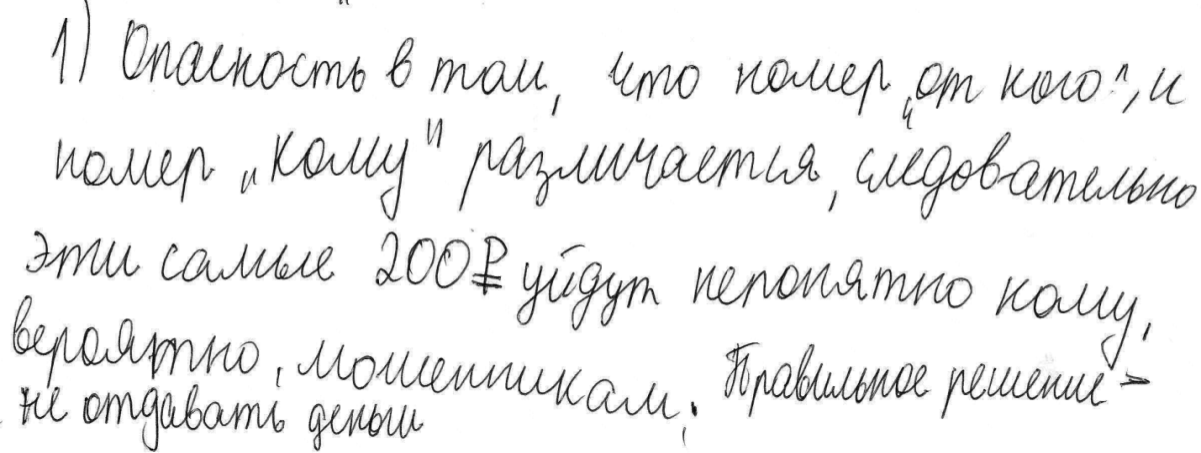 1) Опасность в том, что номер „от кого", и
номер „кому" различается, следовательно
эти самые 200₽ уйдут непонятно кому,
вероятно, мошенникам. Правильное решение -
не отдавать деньги